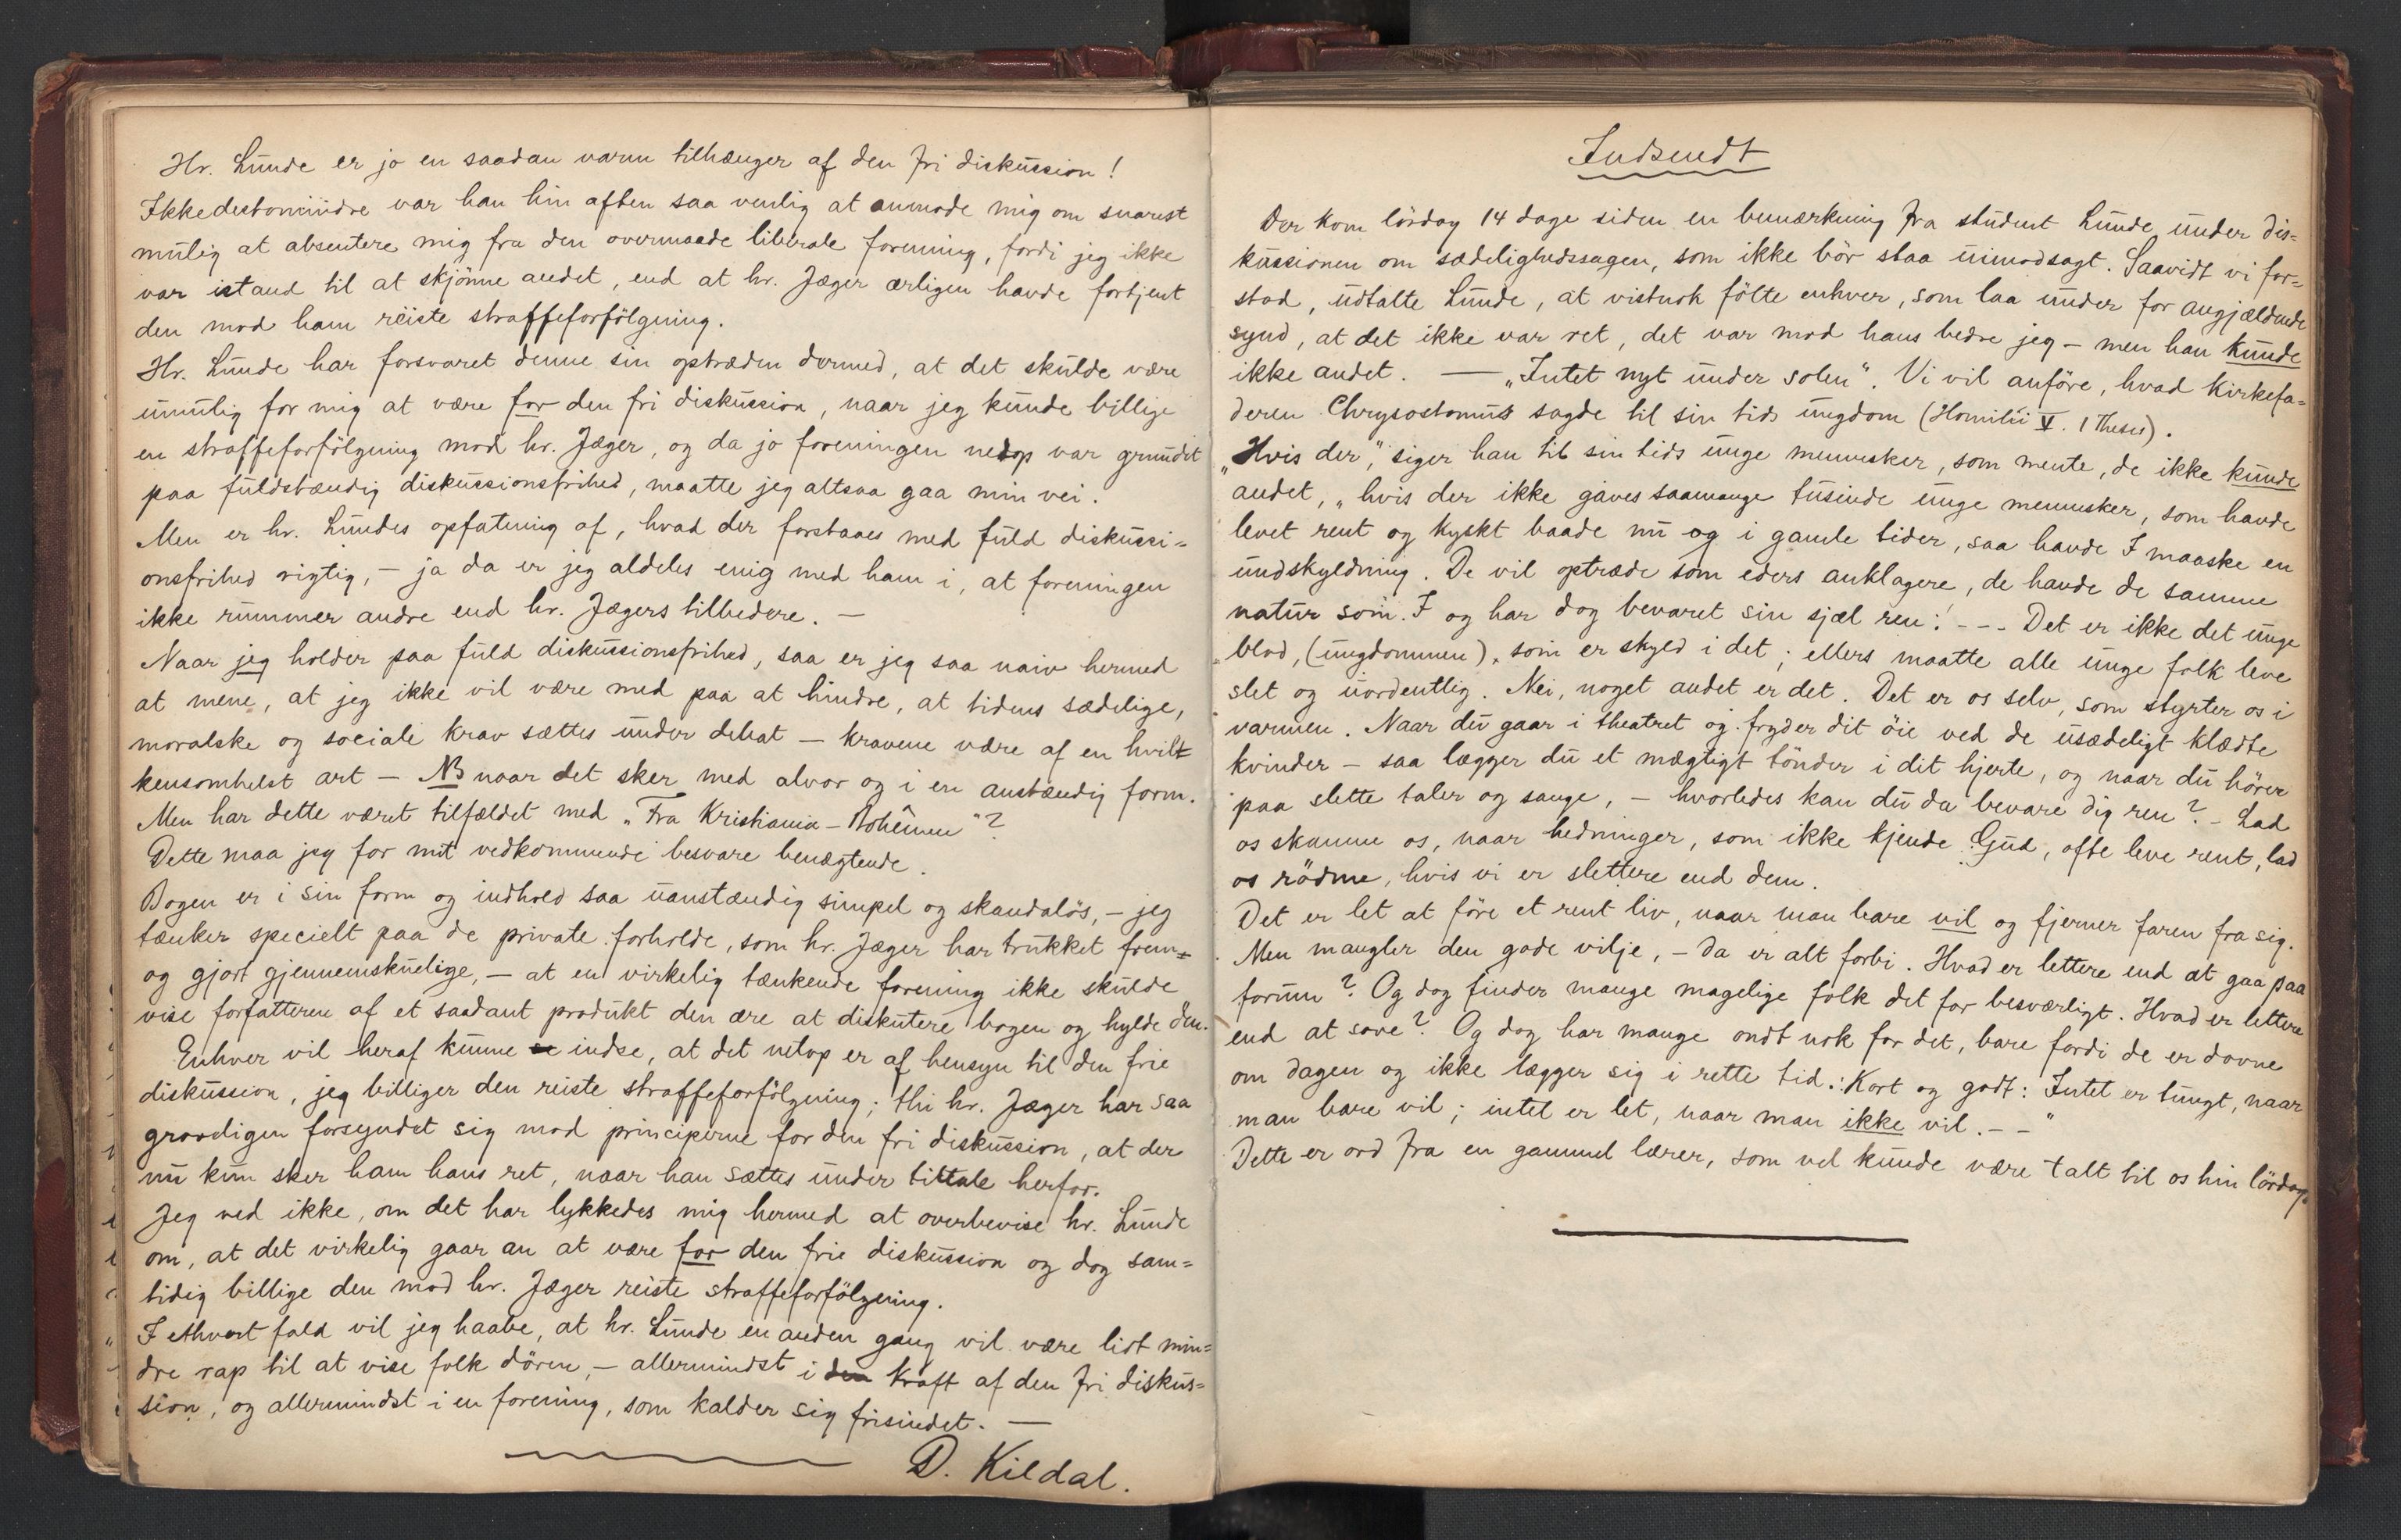 Hr. Lunde er jo en saadan varm tilhænger af den fri diskussion!
Ikkedestomindre var han hin aften saa venlig at anmode mig om snarest
mulig at absentere mig fra den overmaade liberale forening, fordi jeg ikke
var istand til at skjønne andet, end at hr. Jæger ærligen havde fortjent
den mod ham reiste straffeforfölgning.
Hr. Lunde har forsvaret denne sin optræden dermed, at det skulde være
umulig for mig at være for den fri diskussion, naar jeg kunde billige
en straffeforfölgning mod hr. Jæger, og da jo foreningen netop var grundet
paa fuldstændig diskussionsfrihed, maatte jeg altsaa gaa min vei.
Men er hr. Lundes opfatning af, hvad der forstaaes med fuld diskussi-
onsfrihed rigtig, – ja da er jeg aldeles enig med ham i, at foreningen
ikke rummer andre end hr. Jægers tilbedere. –
Naar jeg holder paa fuld diskussionsfrihed, saa er jeg saa naiv hermed
at mene, at jeg ikke vil være med paa at hindre, at tidens sædelige,
moralske og sociale krav sættes under debat – kravene være af en hvil-
kensomhelst art – NB naar det sker med alvor og i en anstændig form.
Men har dette været tilfældet med „Fra Kristiania-Bohêmen"?
Dette maa jeg for mit vedkommende besvare benægtende.
Bogen er i sin form og indhold saa uanstændig simpel og skandalös, – jeg
tænker specielt paa de private forholde, som hr. Jæger har trukket frem
og gjort gjennemskuelige, – at en virkelig tænkende forening ikke skulde
vise forfatteren af et saadant produkt den ære at diskutere bogen og hylde den.
Enhver vil heraf kunne se indse, at det netop er af hensyn til den frie
diskussion, jeg billiger den reiste straffeforfölgning; thi hr. Jæger har saa
grovligen forsyndet sig mod principerne for den fri diskussion, at der
nu kun sker ham hans ret, naar han sættes under tiltale herfor.
Jeg ved ikke, om det har lykkedes mig hermed at overbevise hr. Lunde
om, at det virkelig gaar an at være for den frie diskussion og dog sam-
tidig billige den mod hr. Jæger reiste straffeforfölgning.
I ethvert fald vil jeg haabe, at hr. Lunde en anden gang vil være lidt min-
dre rap til at vise folk dören, – allermindst i den kraft af den fri diskus-
sion, og allermindst i en forening, som kalder sig frisindet. –
D. Kildal.
Indsendt
Der kom lördag 14 dage siden en bemærkning fra student Lunde under dis-
kussionen om sædelighedssagen, som ikke bör staa uimodsagt. Saavidt vi for-
stod, udtalte Lunde, at vistnok fölte enhver, som laa under for angjældende
synd, at det ikke var ret, det var mod hans bedre jeg – men han kunde
ikke andet. — „Intet nyt under solen". Vi vil anföre, hvad kirkefa-
deren Chrysostomus sagde til sin tids ungdom (Homilii V. 1 Thess).
„Hvis der", siger han til sin tids unge mennesker, som mente, de ikke kunde
andet, „hvis der ikke gaves saamange tusinde unge mennesker, som havde
levet rent og kyskt baade nu og i gamle tider, saa havde I maaske en
undskyldning. De vil optræde som eders anklagere, de havde de samme
natur som I og har dog bevaret sin sjæl ren! --- Det er ikke det unge
blod, (ungdommen), som er skyld i det; ellers maatte alle unge folk leve
slet og uordentlig. Nei, noget andet er det. Det er os selv, som styrter os i
varmen. Naar du gaar i theatret og fryder dit öie ved de usædeligt klædte
kvinder – saa lægger du et mægtigt tönder i dit hjerte, og naar du hörer
paa slette taler og sange, – hvorledes kan du da bevare dig ren? – Lad
os skamme os, naar hedninger, som ikke kjende Gud, ofte leve rent, lad
os rödme, hvis vi er slettere end dem.
Det er let at före et rent liv, naar man bare vil og fjerner faren fra sig.
Men mangler den gode vilje, – da er alt forbi. Hvad er lettere end at gaa paa
forum? Og dog finder mange magelige folk det for besværligt. Hvad er lettere
end at sove? Og dog har mange ondt nok for det, bare fordi de er dovne
om dagen og ikke lægger sig i rette tid. Kort og godt: Intet er tungt, naar
man bare vil; intet er let, naar man ikke vil. – –"
Dette er ord fra en gammel lærer, som vel kunde være talt til os hin lördag.